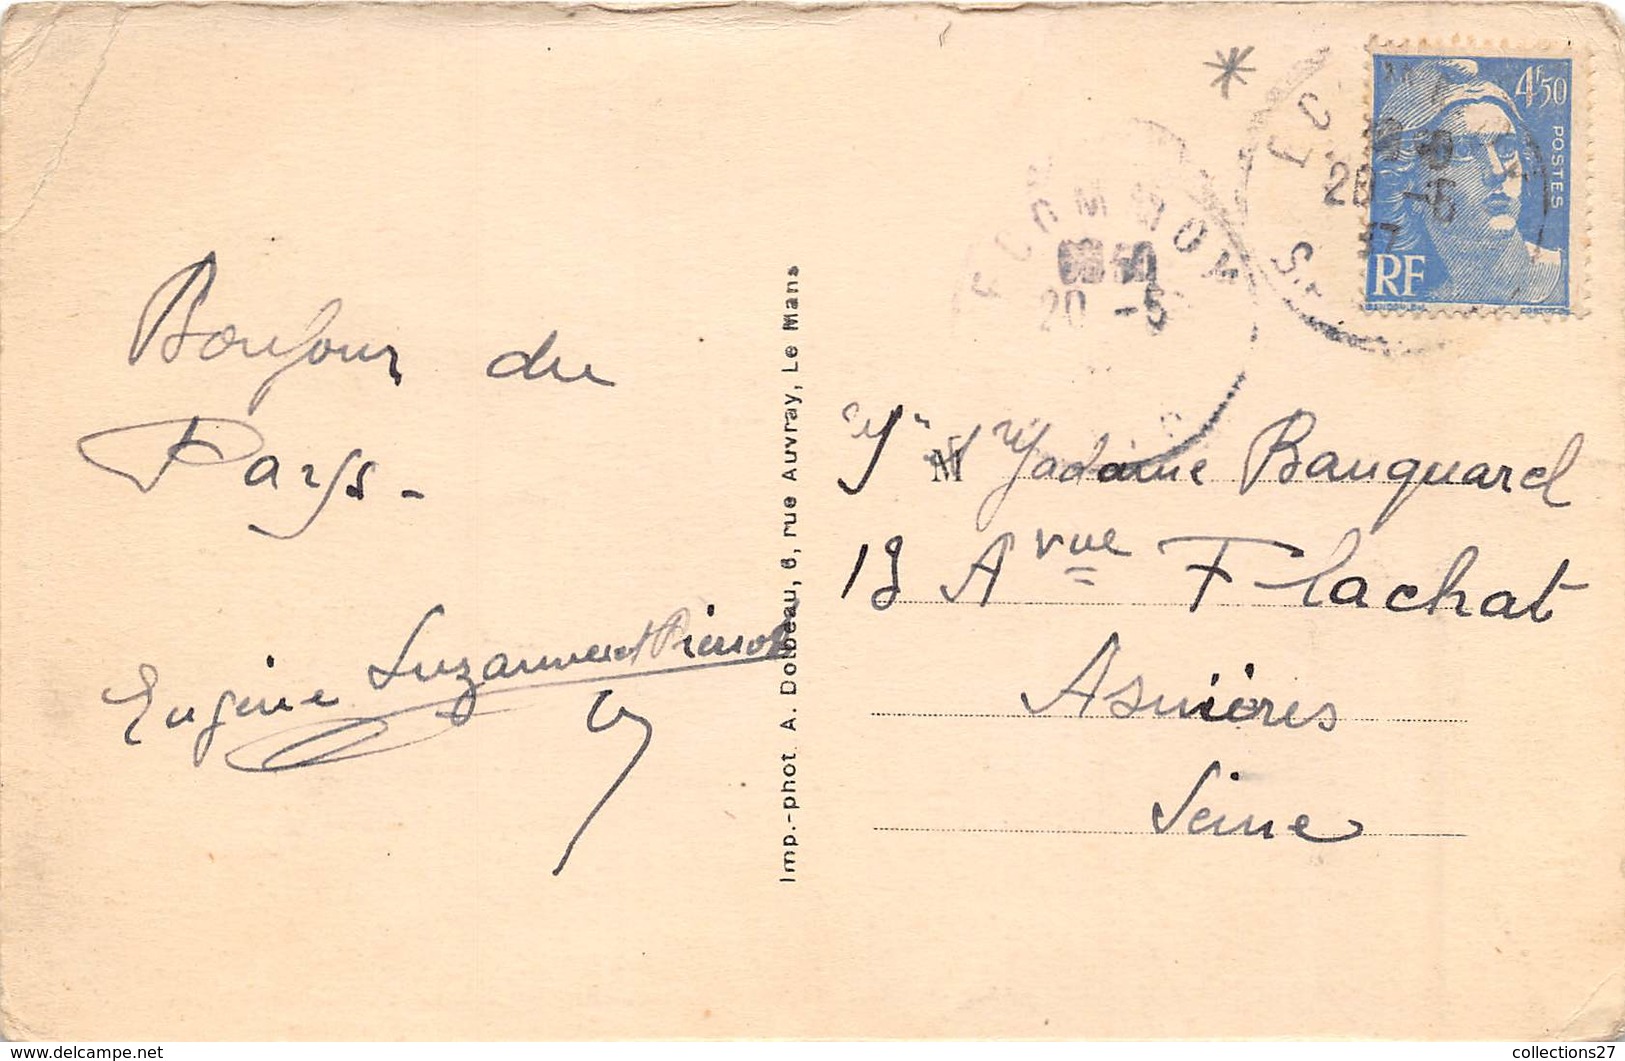 Bonjour du
Pays-
Eugène Suzanne et Pierrot
Imp.-phot. A. Dolbeau, 6, rue Auvray, Le Mans
ECOMMOY
20 -5
ECOMMOY
20 -5
4F50
POSTES
RF
M Madame Bauquarel
13 Avue Flachat
Asnières
Seine
delcampe.net
collections27